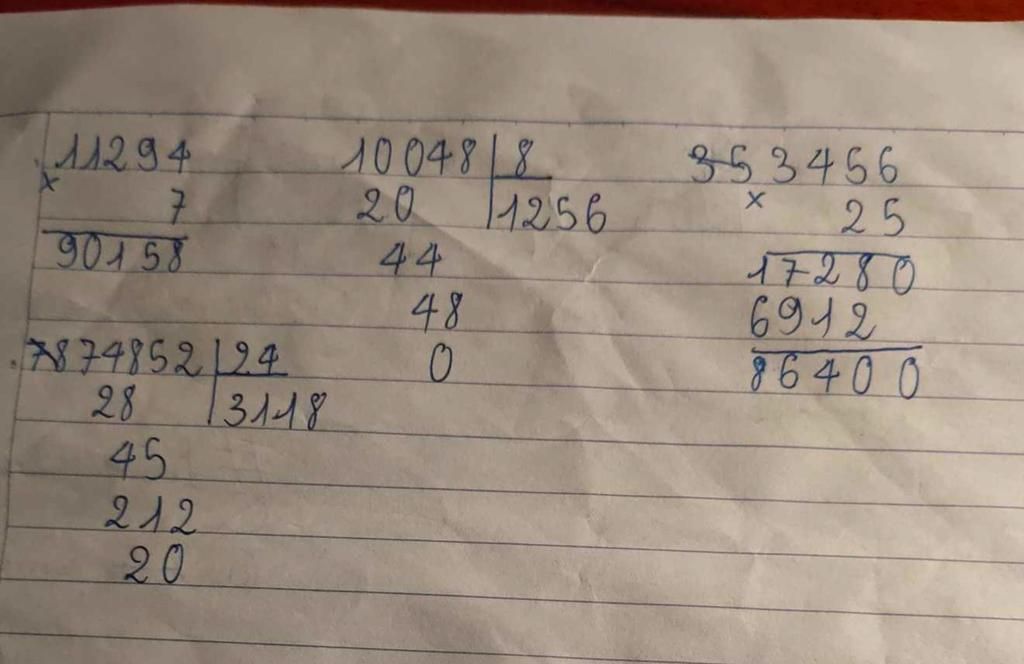 11294 10048 8 353456
x 7 20 1256 x 25
90158 44 17280
48 6912
7874852 24 0 86400
28 3118
45
212
20